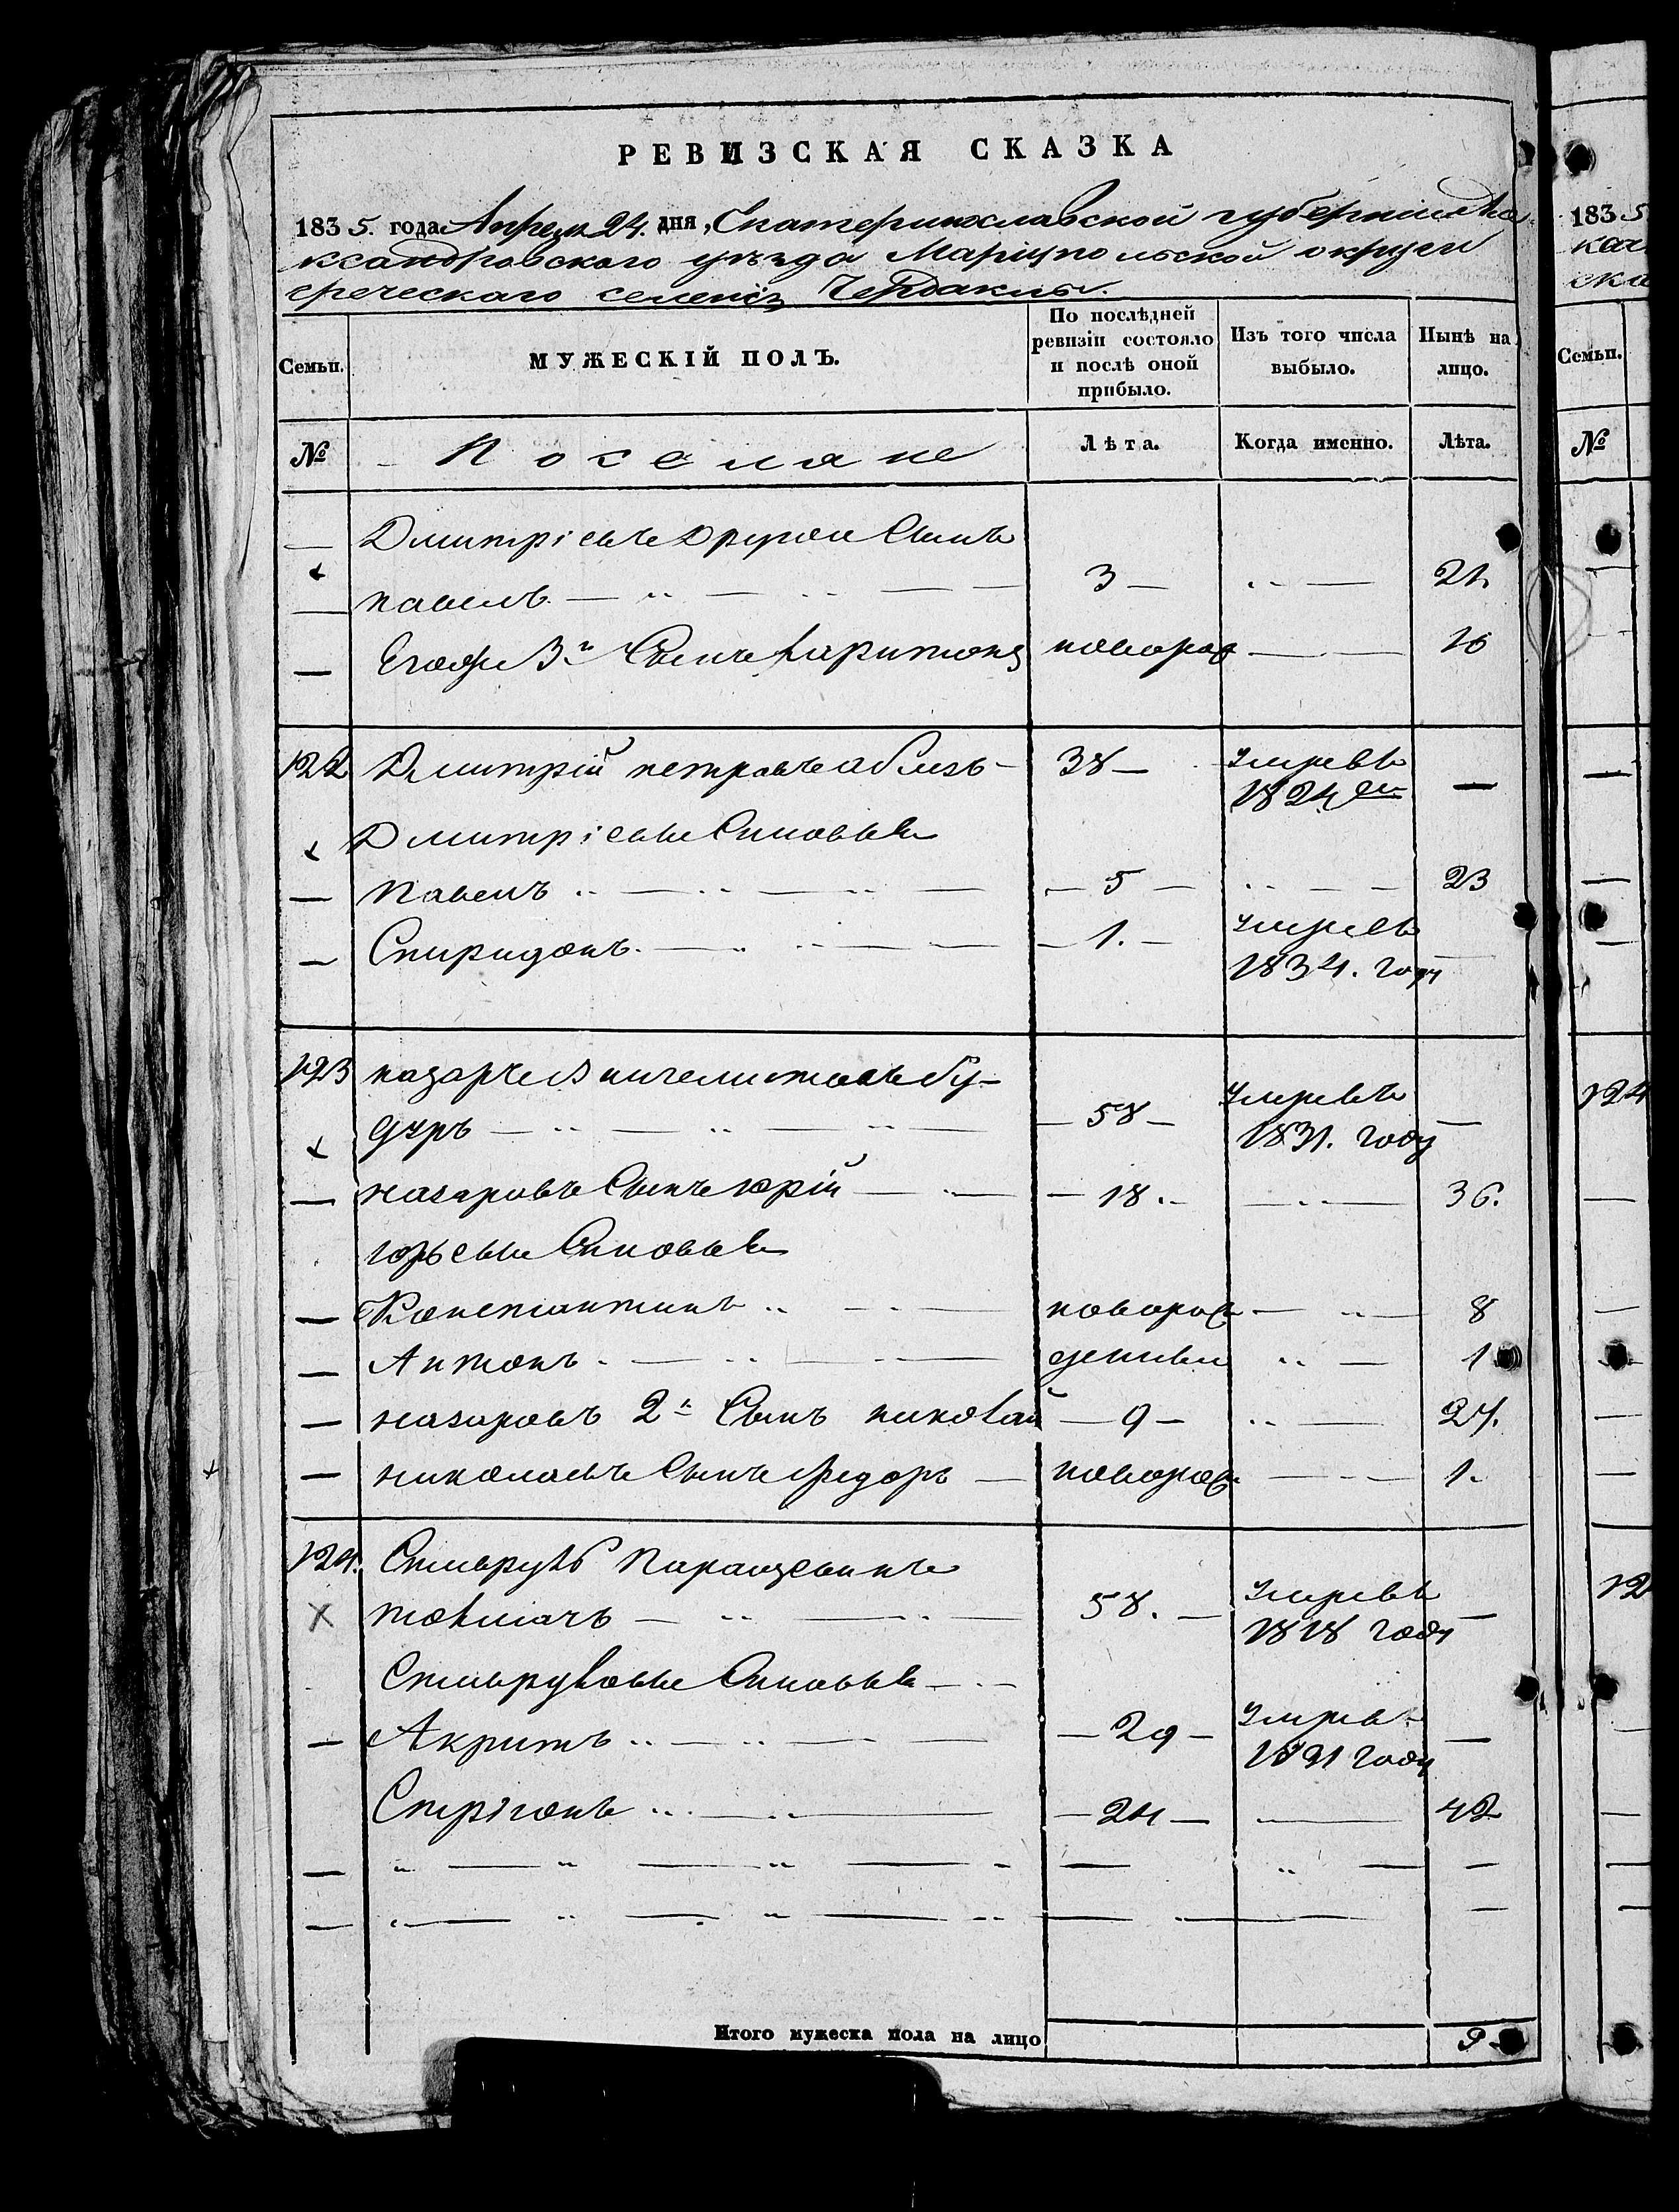 РЕВИЗСКАЯ СКАЗКА
1835. года Апреля 24. дня, Екатеринославской губерніи Але
ксандровского уъзда Маріупольской округи
греческаго селенія Чердаклы.
Семьи. МУЖЕСКІЙ ПОЛЪ. По послѣдней ревизіи состояло и послѣ оной прибыло. Изъ того числа выбыло. Нынѣ на лицо.
№ Поселяне Лѣта. Когда именно. Лѣта.
Дмитріевъ другой Сынъ
павелъ 3 21.
Сынъ харитонъ новорож 16
122 Дмитрій петровъ 38 умревъ
1824
Дмитріевы Сыновья
Павелъ 5 23
Спиридонъ. 1. умревъ
1834. году
123 назаръ бу-
дуръ 58 умревъ
1831. году
назаровъ Сынъ юрій 18. 36.
юрьевы Сыновья
Константинъ новорож 8
Антонъ денны 1
назаровъ 2й Сынъ николай 9 27.
николаевъ Сынъ федоръ новорож 1.
124.
толмачъ 58. умревъ
1818 году
Сыновья
Акритъ 29 умревъ
1831 году
24 42
Итого мужеска пола на лицо 9
1835
№
124